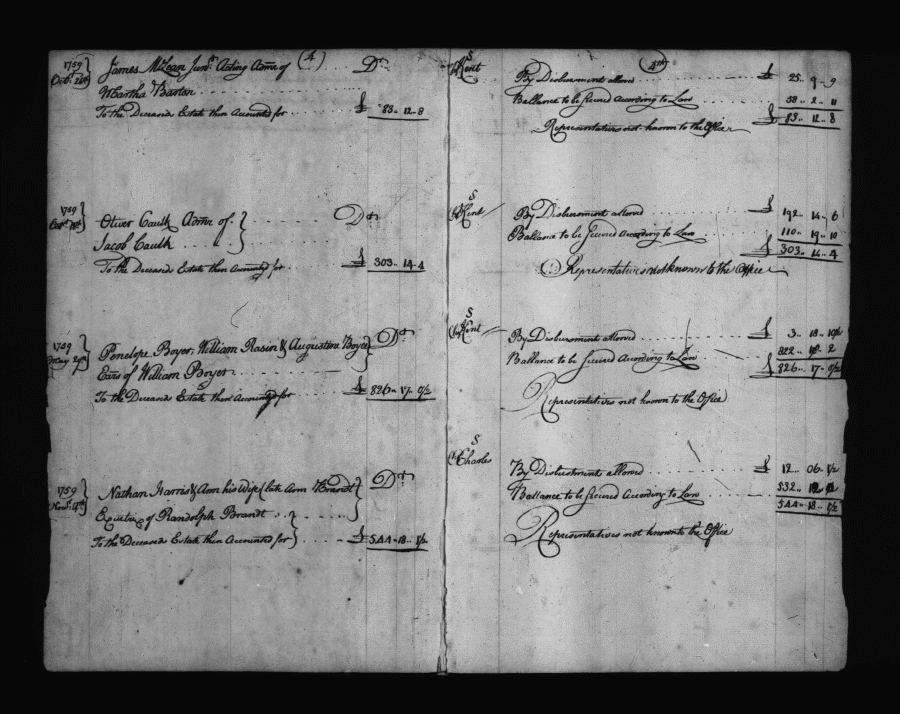 1759
Octr. 24th
James McLean Junr. Acting Admr of (4) Dr.
Martha Barton
To the Deceaseds Estate then Accounted for £ 83.. 12.. 8
1759
Oliver Caulk Admr of Dr.
Jacob Caulk
To the Deceaseds Estate then Accounted for £ 303.. 14.. 4
1759
May 29th
Penelope Boyer, William Rasin & Augustine Boyer Dr.
Exrs of William Boyer
To the Deceaseds Estate then Accounted for £ 826.. 17.. 0½
1759
Novr. 4th
Nathan Harris & Ann his Wife (late Ann Brandt) Dr.
Executrix of Randolph Brandt
To the Deceaseds Estate then Accounted for £ 544.. 18.. ½
Kent
(4th)
By Disbursment allowed £ 25.. 9.. 9
Ballance to be Secured According to Law 58.. 2.. 11
£ 83.. 12.. 8
Representatives not known to the Office
Kent
By Disbursment allowed £ 192.. 14.. 6
Ballance to be Secured According to Law 110.. 19.. 10
£ 303.. 14.. 4
Representatives not known to the Office
Kent
By Disbursment allowed £ 3.. 18.. 10½
Ballance to be Secured According to Law 822.. 18.. 2
£ 826.. 17.. 0½
Representatives not known to the Office
Charles
By Disbursments allowed £ 12.. 06.. ½
Ballance to be Secured According to Law 532.. 12
544.. 18.. ½
Representatives not known to the Office